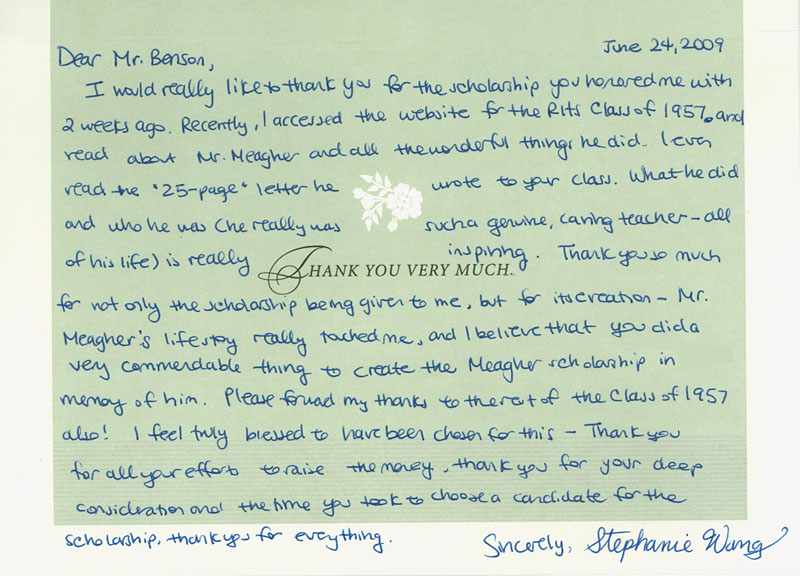 June 24, 2009
Dear Mr. Benson,
I would really like to thank you for the scholarship you honored me with
2 weeks ago. Recently, I accessed the website for the RHS Class of 1957, and
read about Mr. Meagher and all the wonderful things he did. I even
read the "25-page" letter he wrote to your class. What he did
and who he was (he really was such a genuine, caring teacher - all
of his life) is really inspiring. Thank you so much
THANK YOU VERY MUCH.
for not only the scholarship being given to me, but for its creation - Mr.
Meagher's life story really touched me, and I believe that you did a
very commendable thing to create the Meagher scholarship in
memory of him. Please forward my thanks to the rest of the Class of 1957
also! I feel truly blessed to have been chosen for this - Thank you
for all your efforts to raise the money, thank you for your deep
consideration and the time you took to choose a candidate for the
scholarship, thank you for everything.
Sincerely, Stephanie Wang